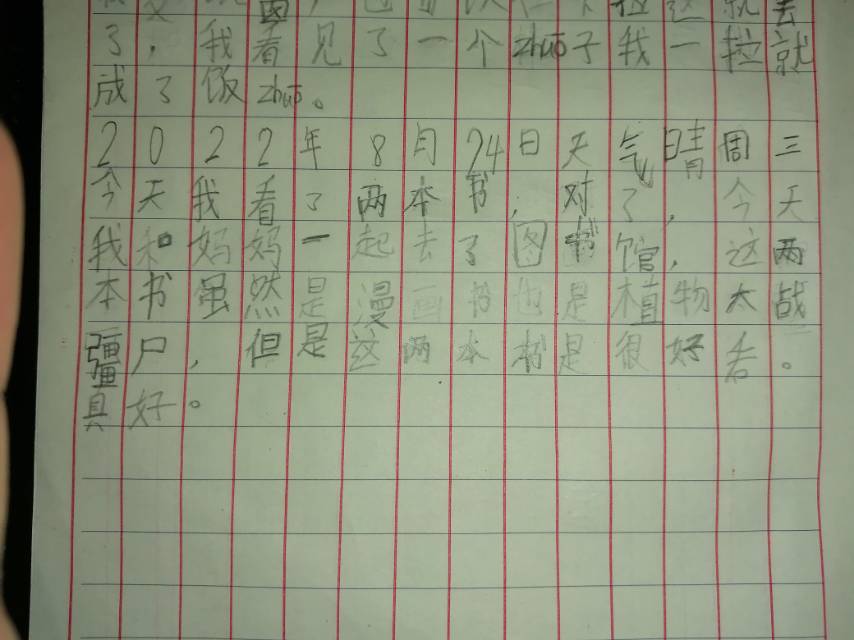 了，我看见了一个zhuō子我一拉就
成了饭zhuō。
2022年8月24日天气晴周三
今天我看了两本书，对了，今天
我和妈妈一起去了图书馆，这两
本书虽然是漫画书也是植物大战
疆尸，但是这两本书是很好看。
真好。